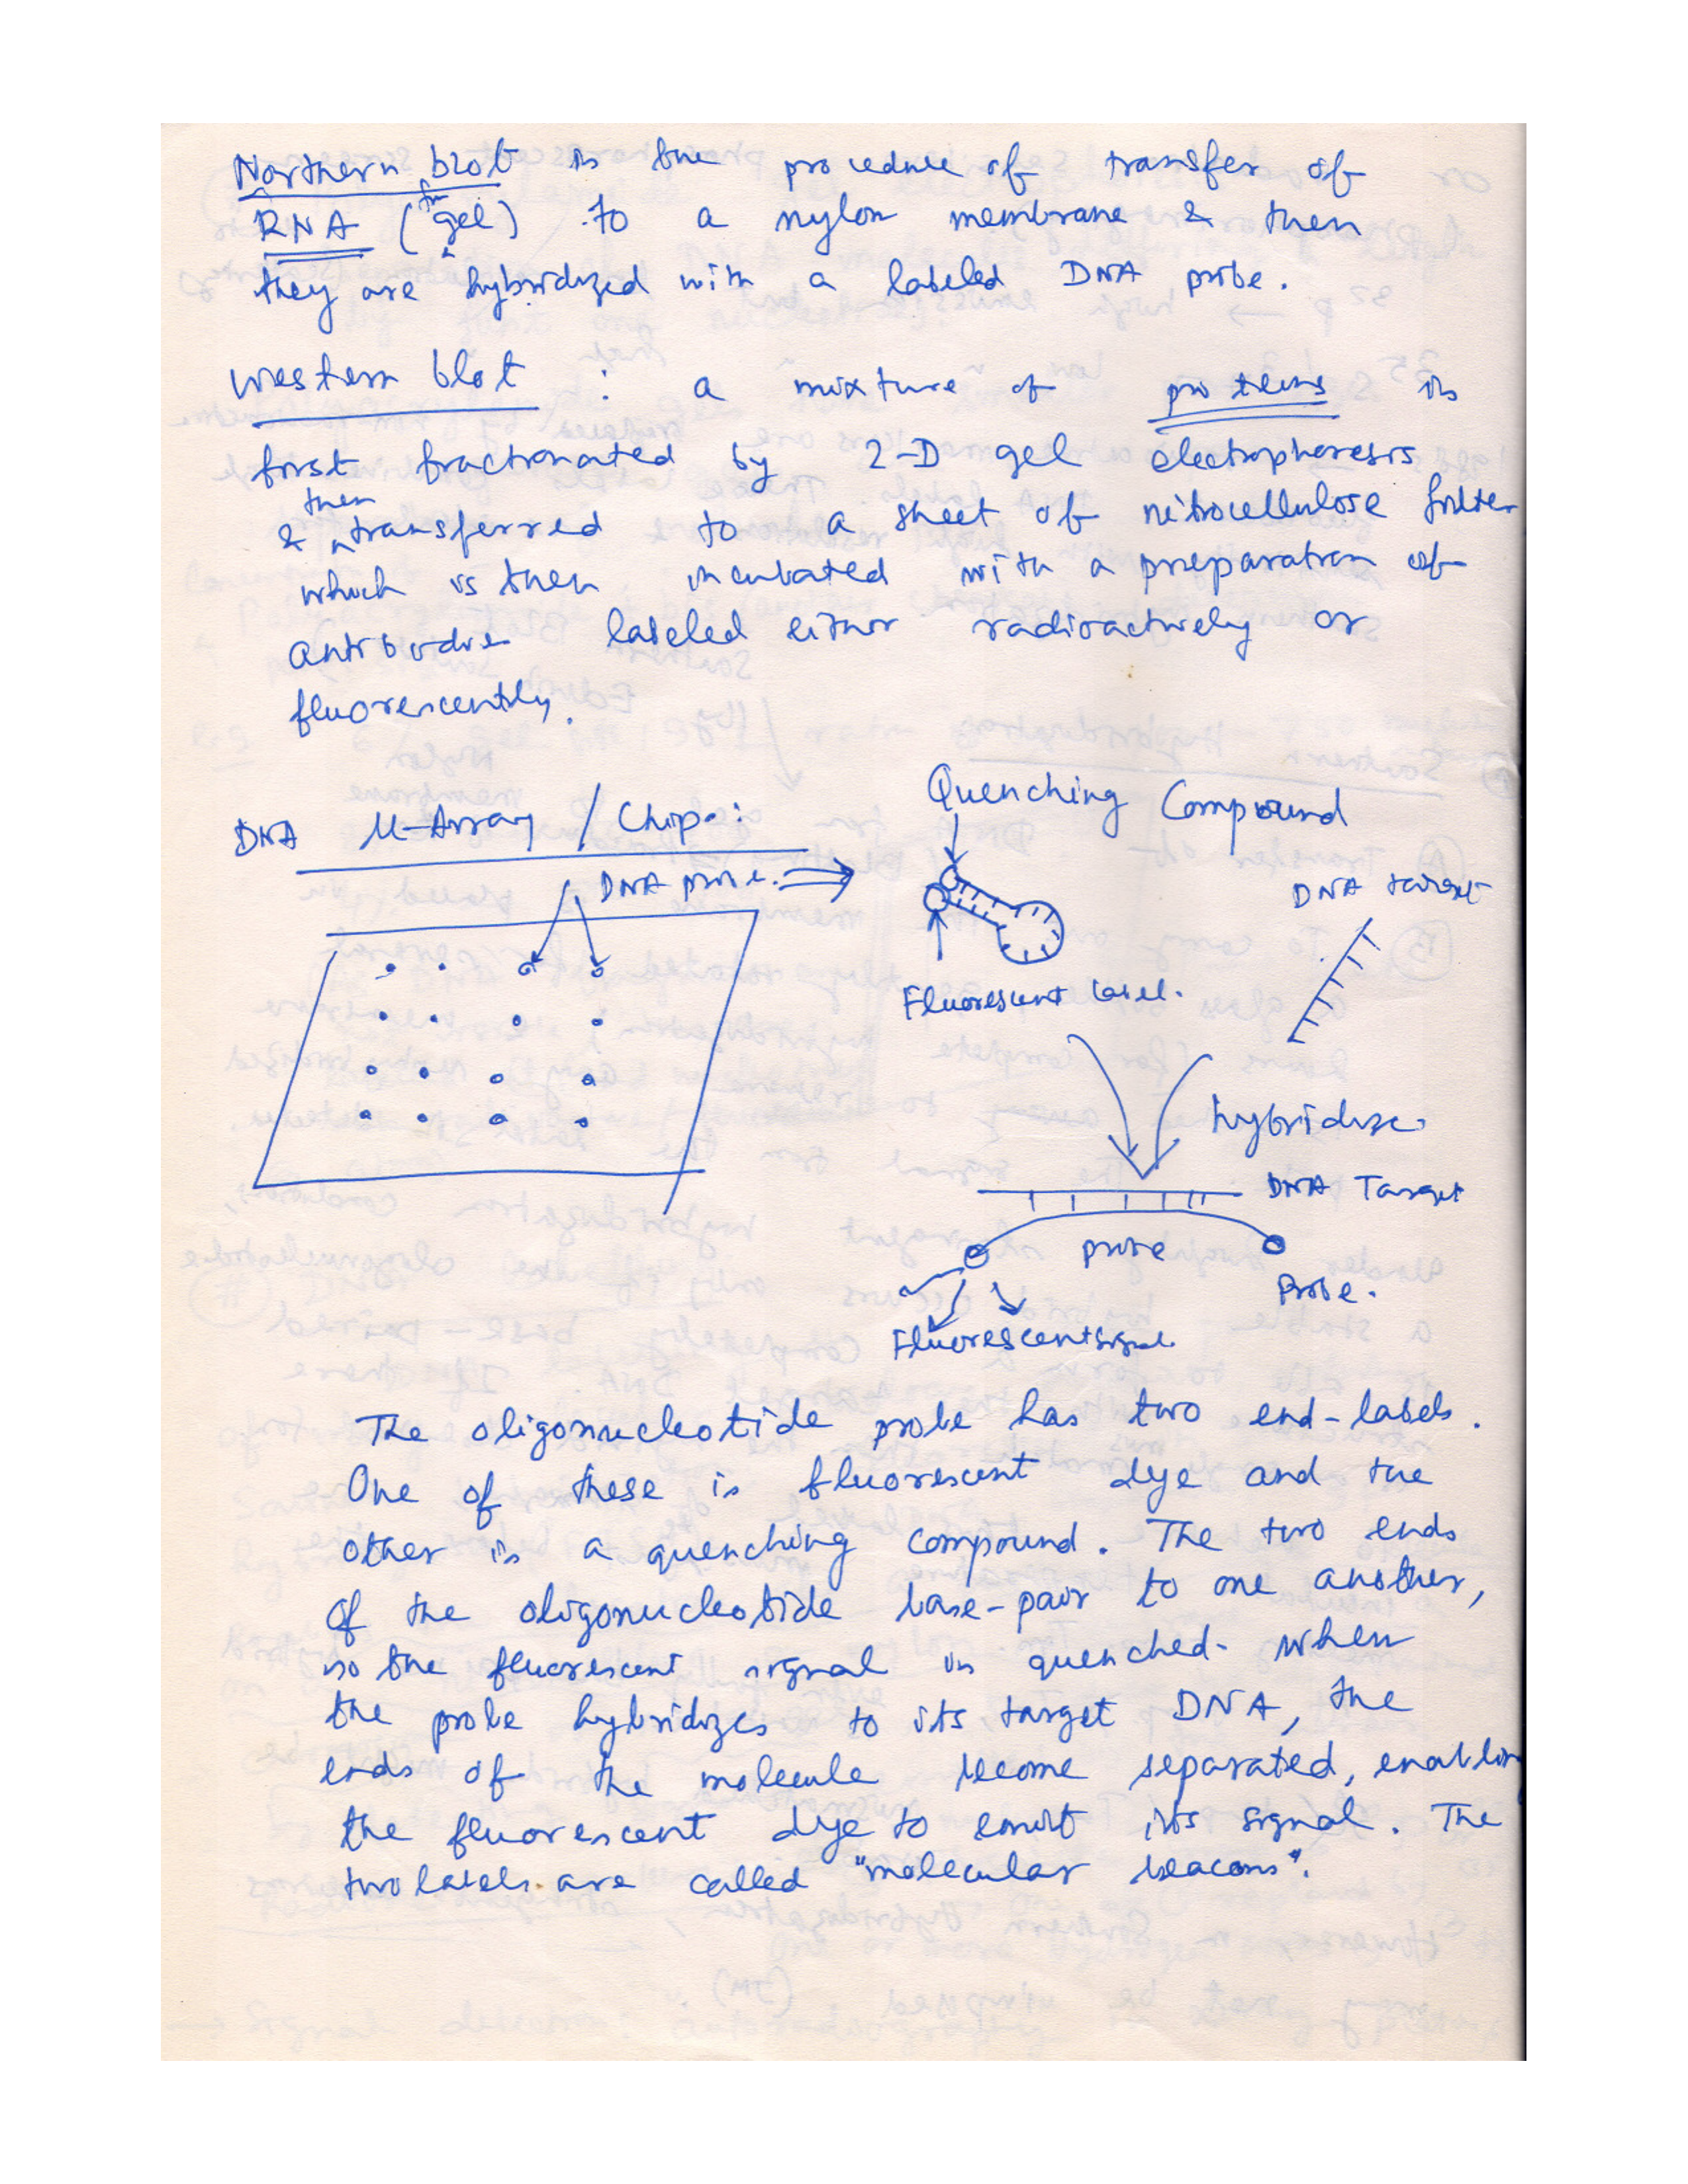 Northern blot is the procedure of transfer of
RNA (fm gel) to a nylon membrane & then
they are hybridized with a labeled DNA probe.
Western blot : a mixture of proteins is
first fractionated by 2-D gel electrophoresis
& then transferred to a sheet of nitrocellulose filter
which is then incubated with a preparation of
antibodies labeled either radioactively or
fluorescently.
DNA μ-Array / Chip:
DNA probe.
Quenching Compound
DNA target
Fluorescent label.
hybridize.
DNA Target
probe
Probe.
Fluorescent signal.
The oligonucleotide probe has two end-labels.
One of these is fluorescent dye and the
other is a quenching compound. The two ends
of the oligonucleotide base-pair to one another,
so the fluorescent signal is quenched. When
the probe hybridizes to its target DNA, the
ends of the molecule become separated, enabling
the fluorescent dye to emit its signal. The
two labels are called "molecular beacons".